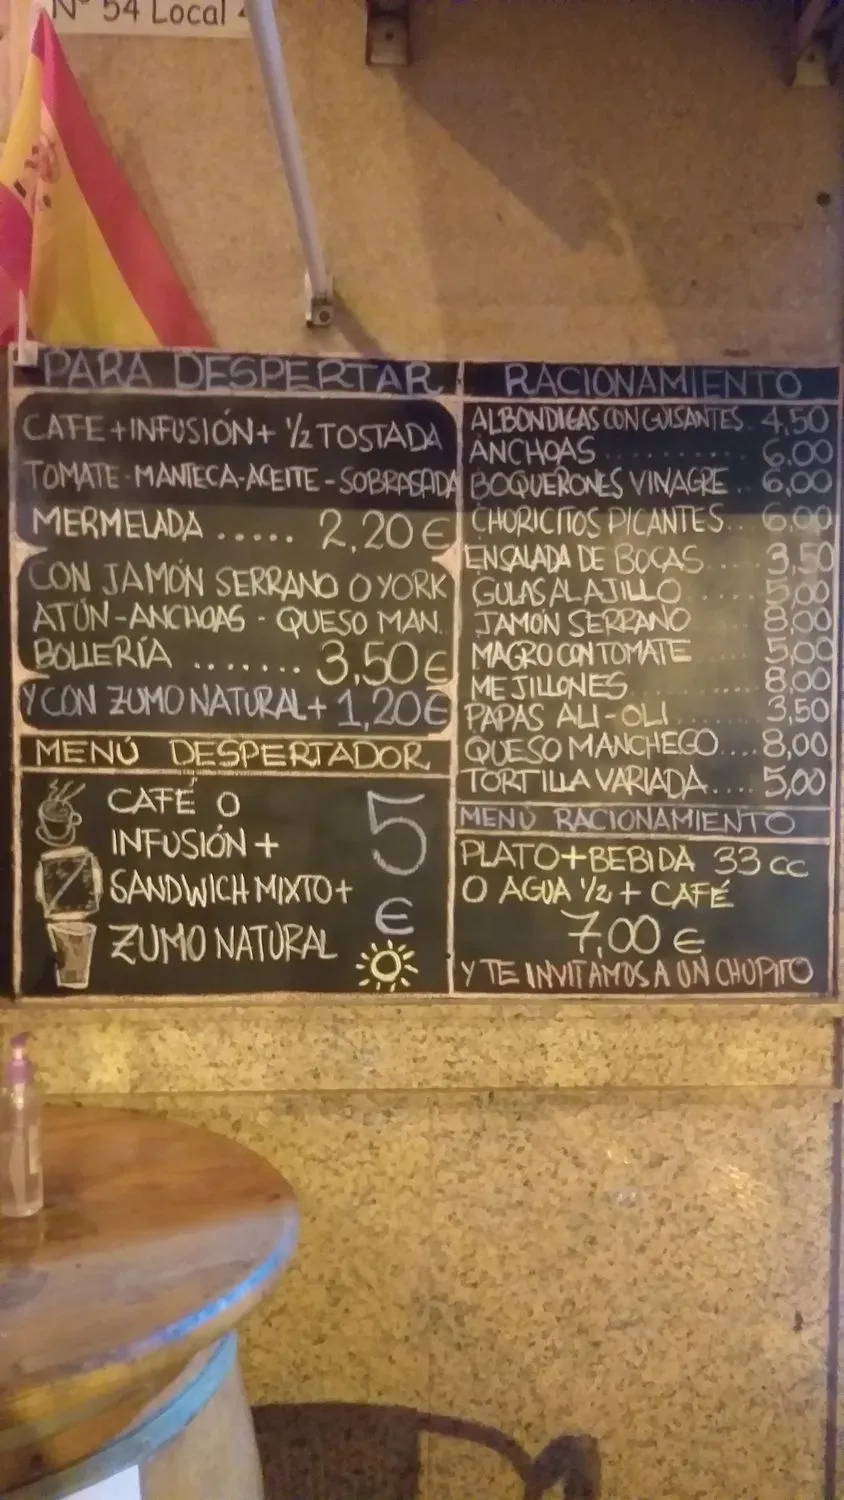 Nº 54 Local
PARA DESPERTAR
CAFE+INFUSIÓN+ 1/2 TOSTADA
TOMATE-MANTECA-ACEITE-SOBRASADA
MERMELADA ..... 2,20 €
CON JAMÓN SERRANO O YORK
ATÚN-ANCHOAS - QUESO MAN.
BOLLERÍA ....... 3,50€
Y CON ZUMO NATURAL + 1,20€
MENÚ DESPERTADOR
CAFÉ O
INFUSIÓN +
SANDWICH MIXTO+
ZUMO NATURAL
5
€
RACIONAMIENTO
ALBONDIGAS CON GUISANTES. 4,50
ANCHOAS .......... 6.00
BOQUERONES VINAGRE .. 6,00
CHORICITOS PICANTES... 6,00
ENSALADA DE BOCAS .... 3,50
GULAS AL AJILLO ..... 5,00
JAMÓN SERRANO ...... 8,00
MAGRO CON TOMATE ..... 5,00
MEJILLONES ........ 8,00
PAPAS ALI-OLI ...... 3,50
QUESO MANCHEGO.... 8,00
TORTILLA VARIADA.... 5,00
MENÚ RACIONAMIENTO
PLATO+BEBIDA 33 cc
O AGUA 1/2 + CAFÉ
7,00 €
Y TE INVITAMOS A UN CHUPITO